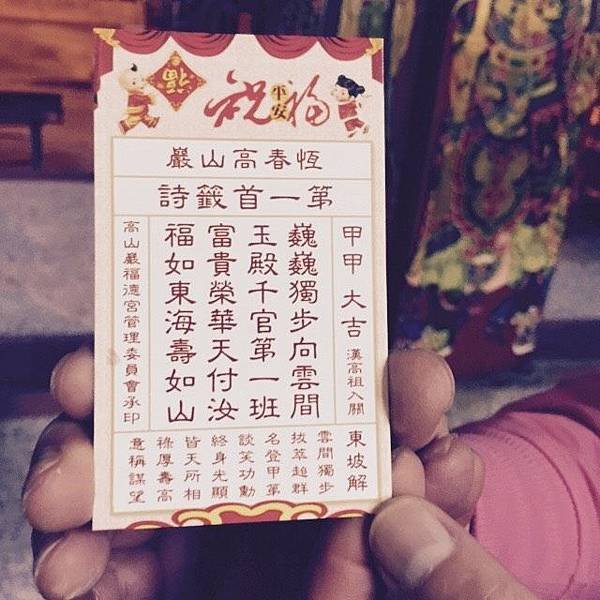 點
祝福
平安
恆春高山巖
第一首籤詩
甲甲 大吉 漢高祖入關
巍巍獨步向雲間
玉殿千官第一班
富貴榮華天付汝
福如東海壽如山
高山巖福德宮管理委員會承印
東坡解
雲間獨步
拔萃超群
名登甲第
談笑功勳
終身光顯
皆天所相
祿厚壽高
意稱謀望